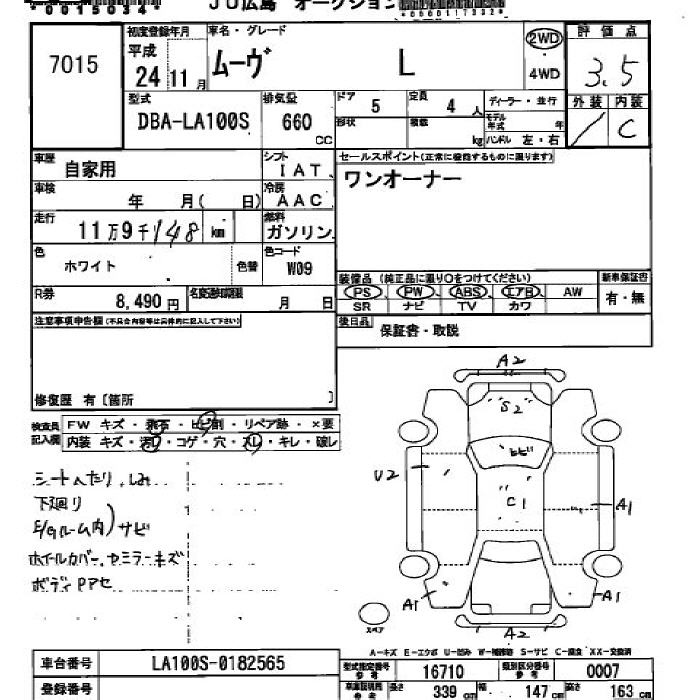 *0015034*
JU広島 オークション
*0000117332*
7015
初度登録年月
平成
24 11月
車名・グレード
ムーヴ L
2WD
4WD
評価点
3.5
型式
DBA-LA100S
排気量
660 CC
ドア 5
定員 4 人
ディーラー・並行
形状
積載 kg
モデル年式 年
ハンドル 左・右
外装 内装
/ C
車歴 自家用
シフト IAT
セールスポイント(正常に機能するものに限ります)
車検 年 月( 日)
冷房 AAC
ワンオーナー
走行 11万9千148 km
燃料 ガソリン
色 ホワイト 色替
色コード W09
装備品(純正品に限り○をつけてください)
新車保証書
R券 8,490円
名変期限 月 日
PS PW ABS エアB AW
SR ナビ TV カワ
有・無
注意事項申告欄(不具合内容等は具体的に記入して下さい)
後日品 保証書・取説
修復歴 有〔箇所 〕
検査員記入欄
FW キズ・飛石・ヒビ割・リペア跡・×要
内装 キズ・汚レ・コゲ・穴・スレ・キレ・破レ
シートへたり、しみ
下廻り
E/gルーム内)サビ
ホイルカバー、ミラーキズ
ボディPアセ
A2
S2
ヒビ
U2
C1
A1
A1
A1
A2
スペア
A-キズ E-エクボ U-凹み W-補修跡 S-サビ C-腐食 XX-交換済
車台番号 LA100S-0182565
型式指定番号 参考 16710
類別区分番号 参考 0007
登録番号
長さ 339 cm 幅 147 cm 高さ 163 cm